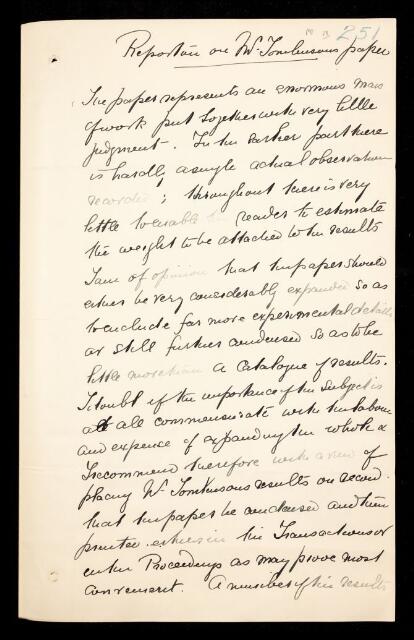 251
Report on Mr. Tomlinsons paper
The paper represents an enormous mass
of work put together with very little
judgment. In the earlier part there
is hardly a single actual observation
recorded; throughout there is very
little to enable the reader to estimate
the weight to be attached to the results
I am of opinion that the paper should
either be very considerably expanded so as
to include far more experimental details
or still further condensed so as to be
little more than a Catalogue of results.
I doubt if the importance of the subject is
at all commensurate with the labour
and expense of expanding the whole &
I recommend therefore with a view of
placing Mr Tomlinsons results on record
that the paper be condensed and then
printed either in the Transactions or
in the Proceedings as may prove most
convenient. A number of his results